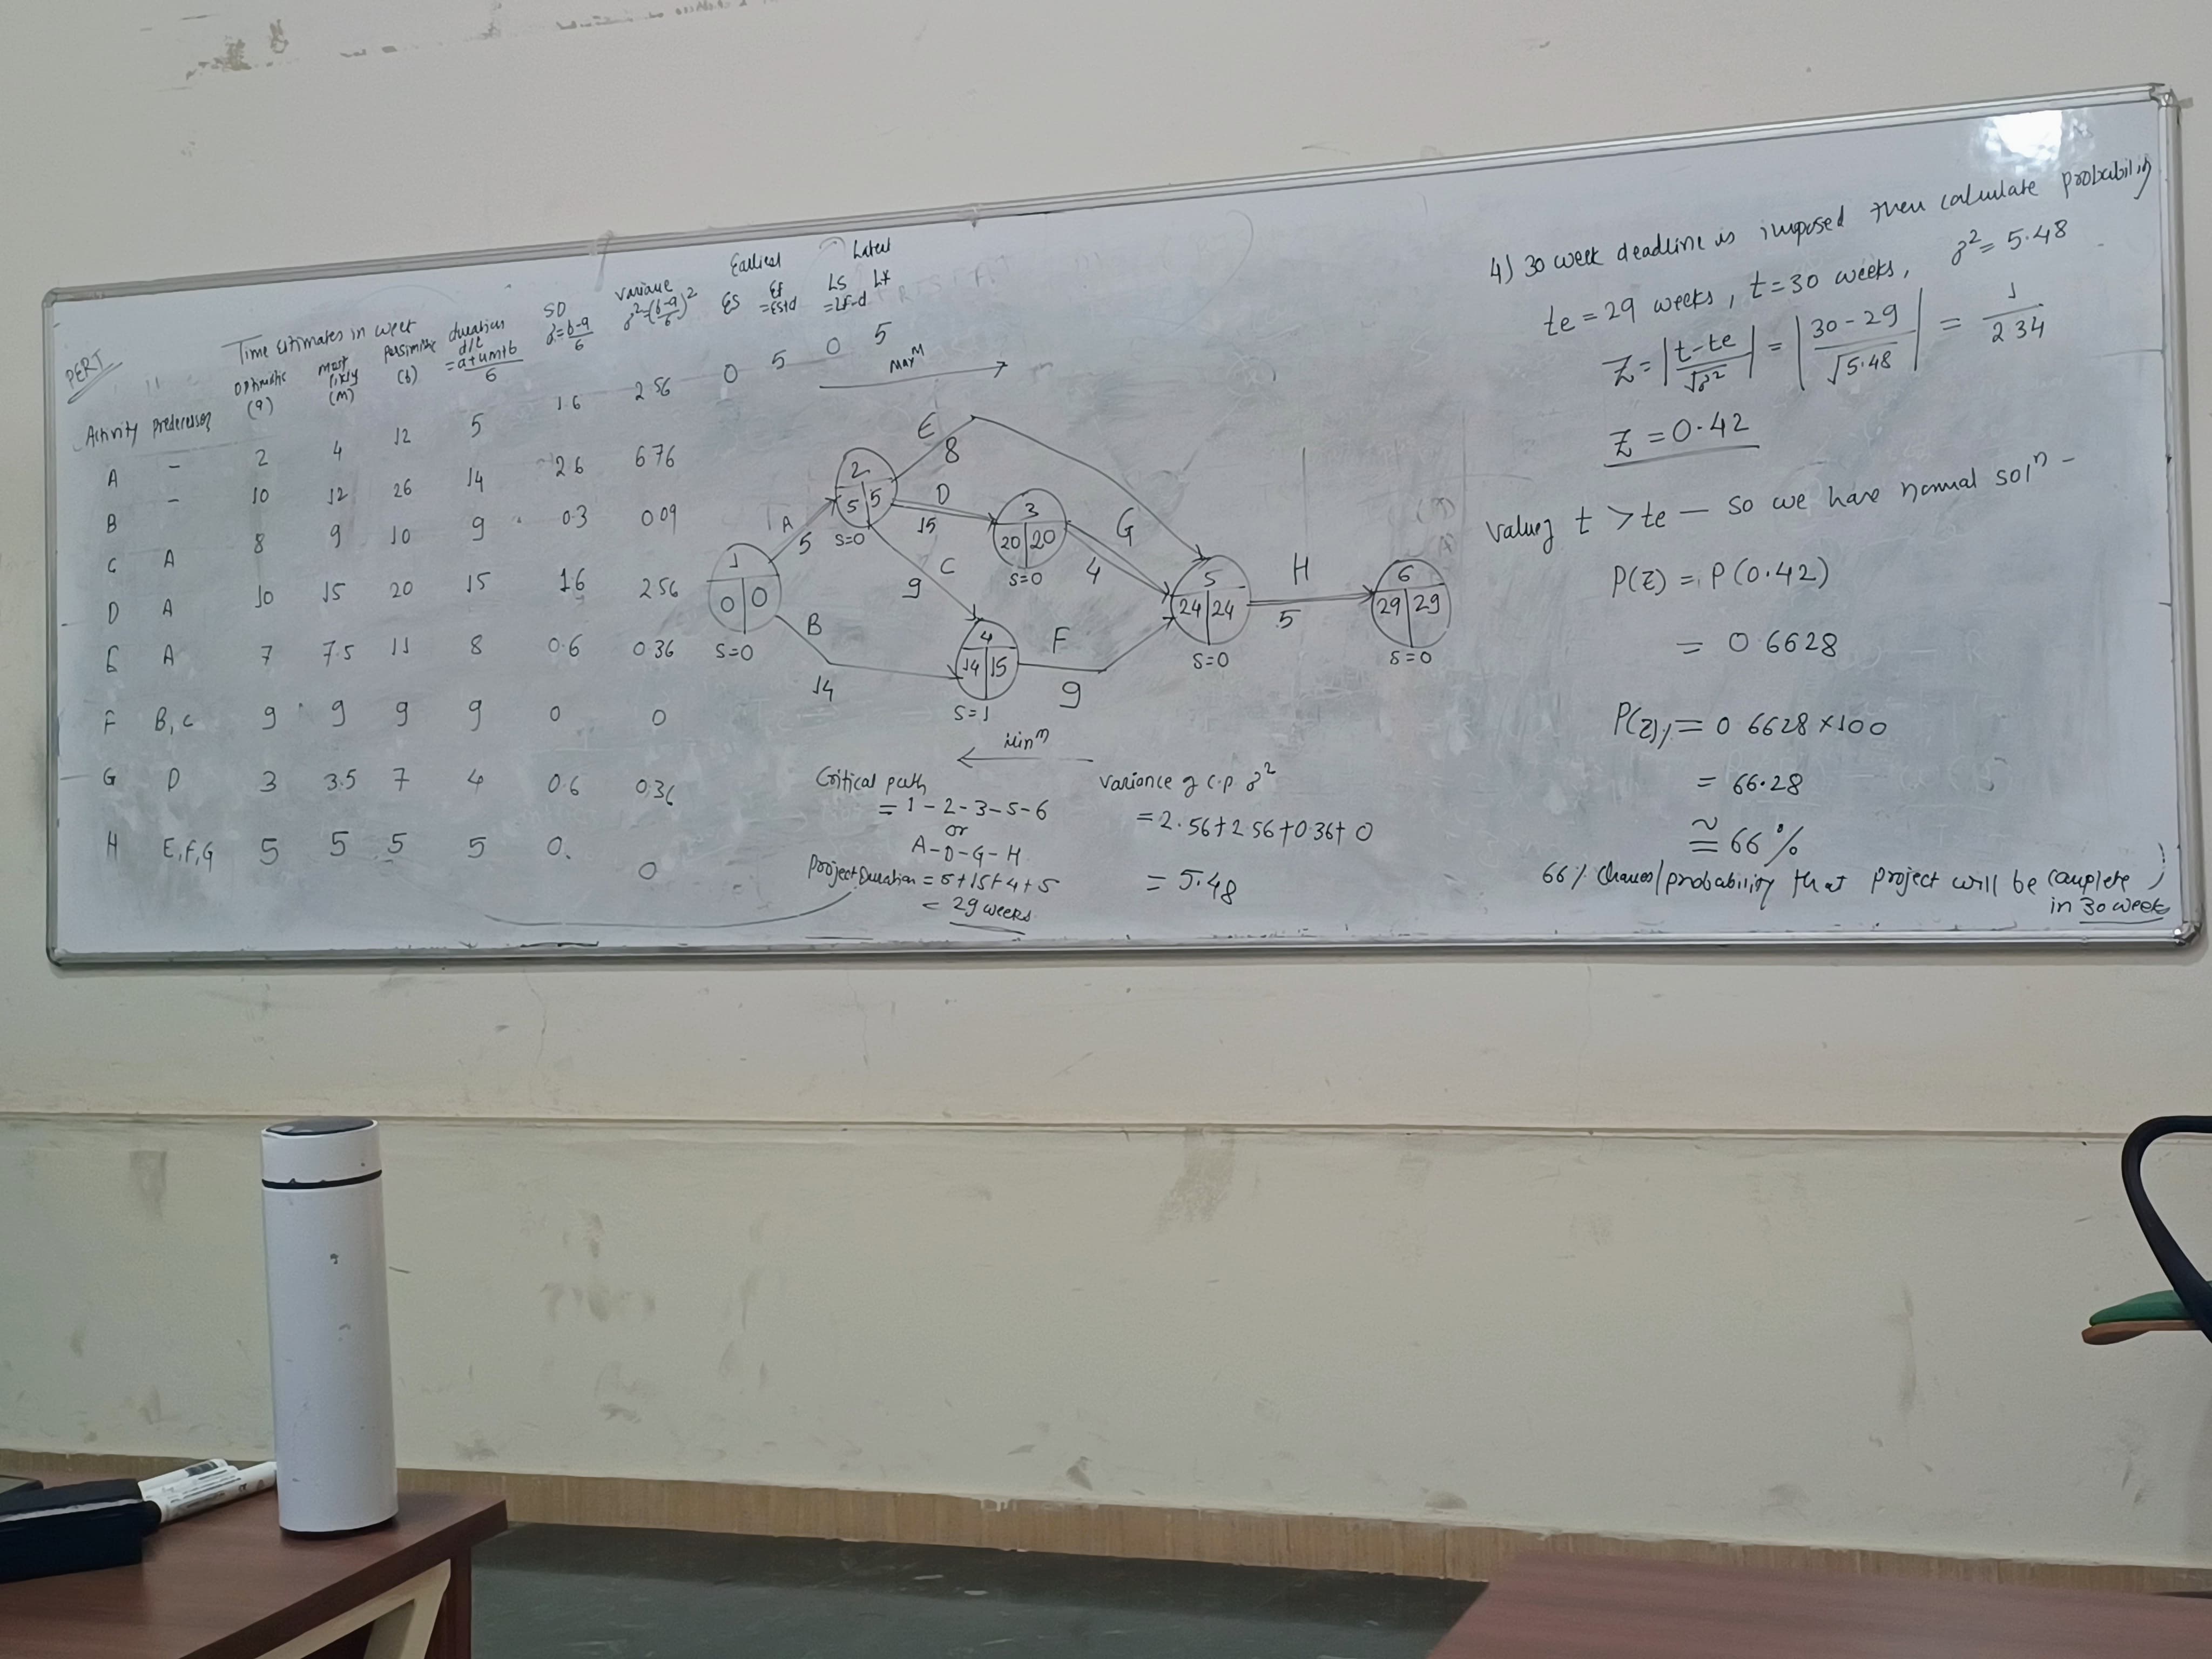 PERT
Time estimates in week
Activity Predecessor Optimistic (a) Most likly (m) Pessimistic (b) duration d/t = a+4m+b/6 SD σ=b-a/6 Variance σ²=(b-a/6)² Earliest ES Ef =ES+d Latest LS =LF-d Lf
A - 2 4 12 5 1.6 2.56 0 5 0 5
B - 10 12 26 14 2.6 6.76
C A 8 9 10 9 0.3 0.09
D A 10 15 20 15 1.6 2.56
E A 7 7.5 11 8 0.6 0.36
F B, C 9 9 9 9 0 0
G D 3 3.5 7 4 0.6 0.36
H E,F,G 5 5 5 5 0. 0
Maxᵐ
1
0 0
S=0
A
5
B
14
2
5 5
S=0
E
8
D
15
C
9
3
20 20
S=0
G
4
4
14 15
S=1
F
9
5
24 24
S=0
H
5
6
29 29
S=0
minᵐ
Critical path
= 1-2-3-5-6
or
A-D-G-H
Project Duration = 5+15+4+5
= 29 weeks
Variance of c.p. σ²
= 2.56+2.56+0.36+0
= 5.48
4) 30 week deadline is imposed then calculate probability
te = 29 weeks, t = 30 weeks, σ² = 5.48
Z = |t-te/√σ²| = |30-29/√5.48| = 1/2.34
Z = 0.42
Value of t > te — so we have normal solⁿ -
P(Z) = P(0.42)
= 0.6628
P(Z) = 0.6628 × 100
= 66.28
≅ 66%
66% chances/probability that project will be complete
in 30 weeks